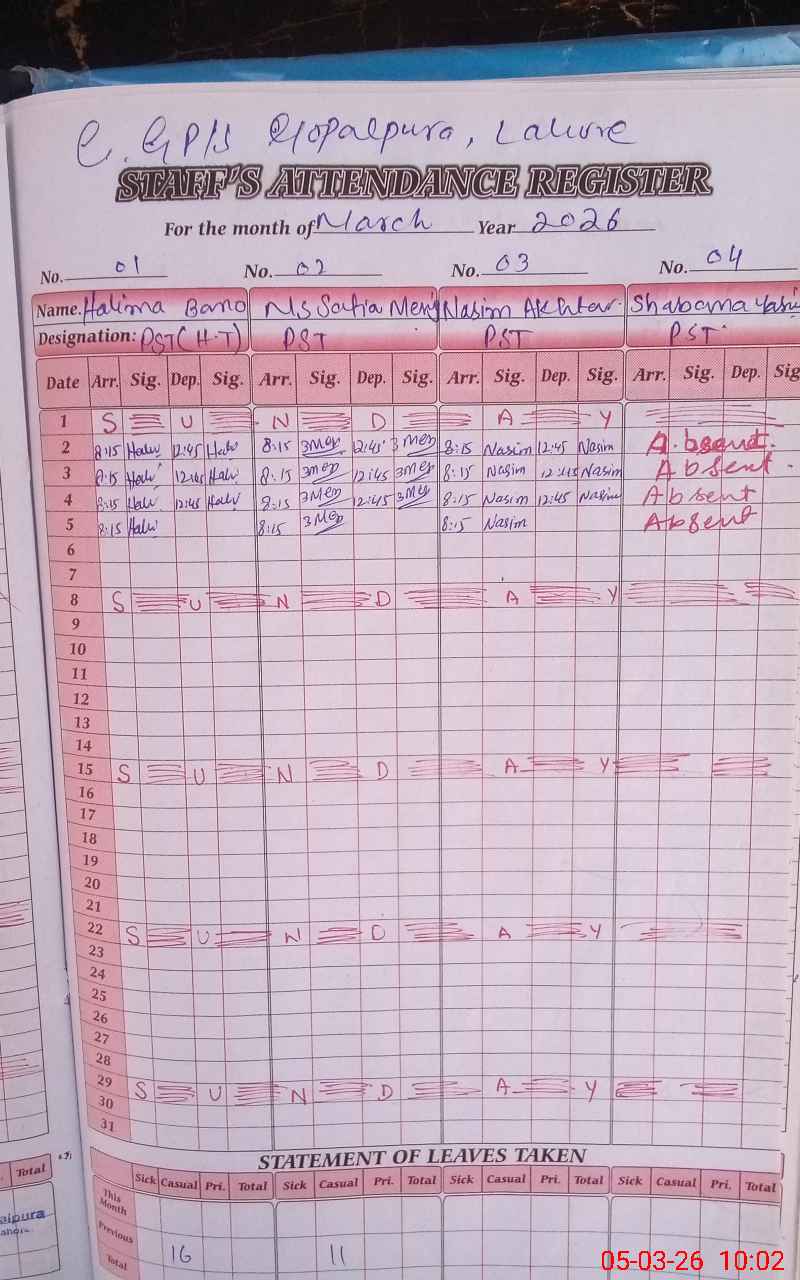 G. GP/S Gopalpura, Lahore
STAFF'S ATTENDANCE REGISTER
For the month of March Year 2026
No. 01 No. 02 No. 03 No. 04
Name. Halima Bano Ms Safia Nasim Akhtar. Shabana
Designation: PST (H.T) PST PST PST
Date Arr. Sig. Dep. Sig. Arr. Sig. Dep. Sig. Arr. Sig. Dep. Sig. Arr. Sig. Dep. Sig
1 S U N D A Y
2 8:15 12:45 8:15 12:45 8:15 Nasim 12:45 Nasim Absent.
3 8:15 12:45 8:15 12:45 8:15 Nasim 12:45 Nasim Absent.
4 8:15 12:45 8:15 12:45 8:15 Nasim 12:45 Nasim Absent
5 8:15 8:15 8:15 Nasim Absent
6
7
8 S U N D A Y
9
10
11
12
13
14
15 S U N D A Y
16
17
18
19
20
21
22 S U N D A Y
23
24
25
26
27
28
29 S U N D A Y
30
31
STATEMENT OF LEAVES TAKEN
Total Sick Casual Pri. Total Sick Casual Pri. Total Sick Casual Pri. Total Sick Casual Pri. Total
This Month
Previous
16 11
Total
05-03-26 10:02